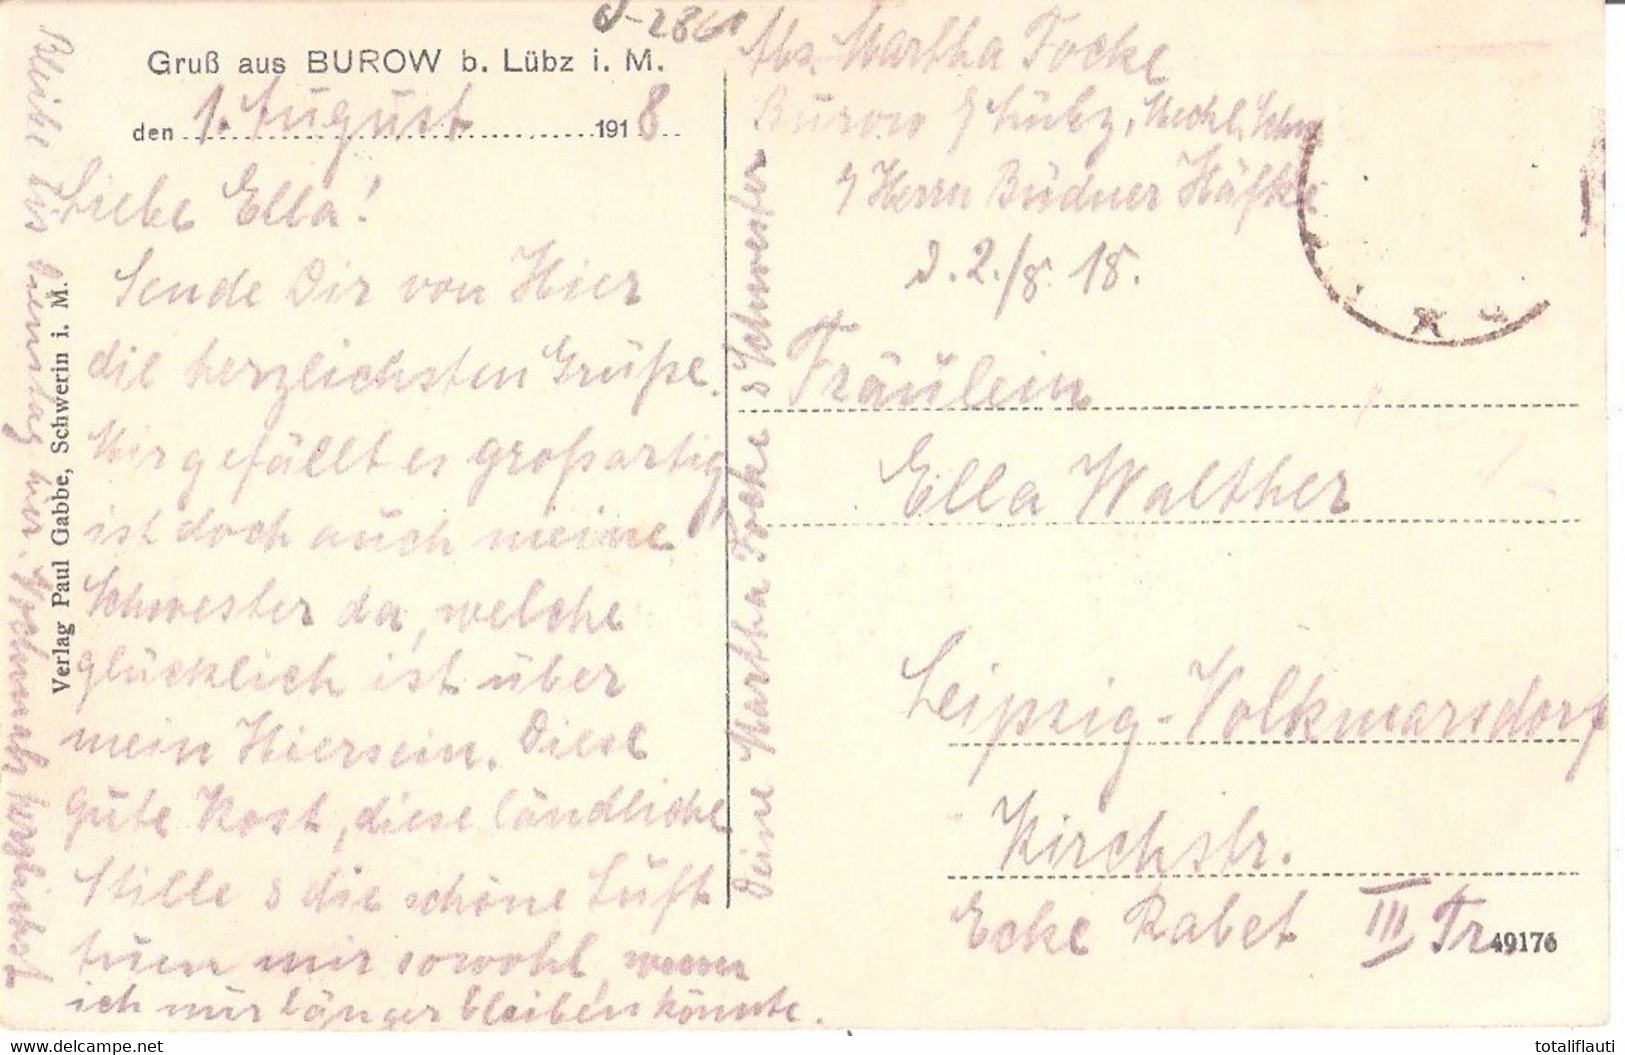 J-2861
Gruß aus BUROW b. Lübz i. M.
den 1. August 1918
Liebe Ella!
Sende Dir von Hier
die herzlichsten Grüße.
Mir gefällt es großartig,
ist doch auch meine
Schwester da, welche
glücklich ist über
mein Hiersein. Diese
gute Kost, diese ländliche
Stille & die schöne Luft
tuen mir sowohl, wenn
ich nur länger bleiben könnte.
Bleibe bis Dienstag hier. Nochmals herzlichst
Deine Martha Focke & Schwester
Verlag Paul Gabbe, Schwerin i. M.
Abs. Martha Focke
Burow b/ Lübz, Meckl. Schw.
b/ Herrn Büdner
d. 2./8. 18.
Fräulein
Ella Walther
Leipzig-Volkmarsdorf
Kirchstr.
Ecke Rabet III Tr
49176
totaliflauti
www.delcampe.net